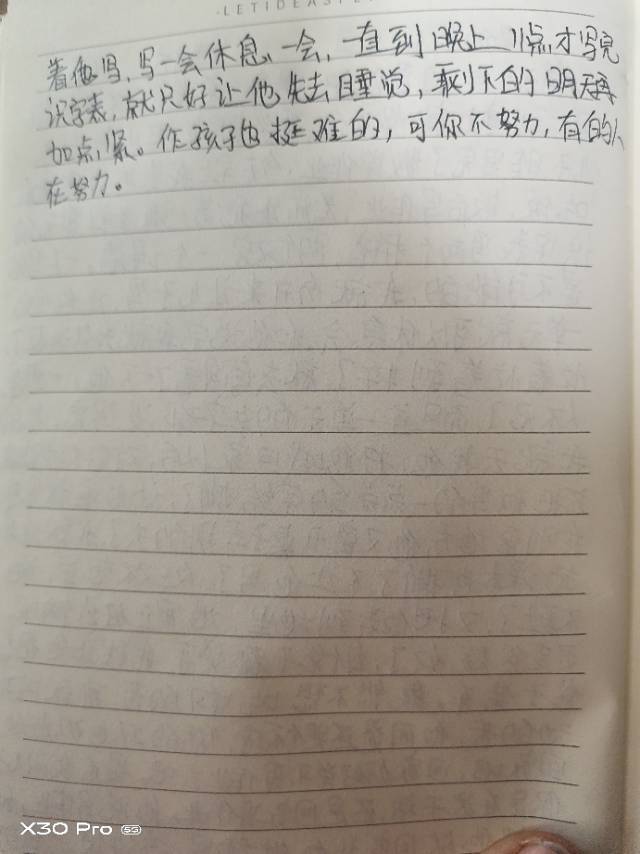 ·LETIDEAS
着他写,写一会休息、一会,一直到晚上 11点才写完
识字表,就只好让他先去睡觉,剩下的明天再
加点紧。作孩子也挺难的,可你不努力,有的人
在努力。
X30 Pro 5G